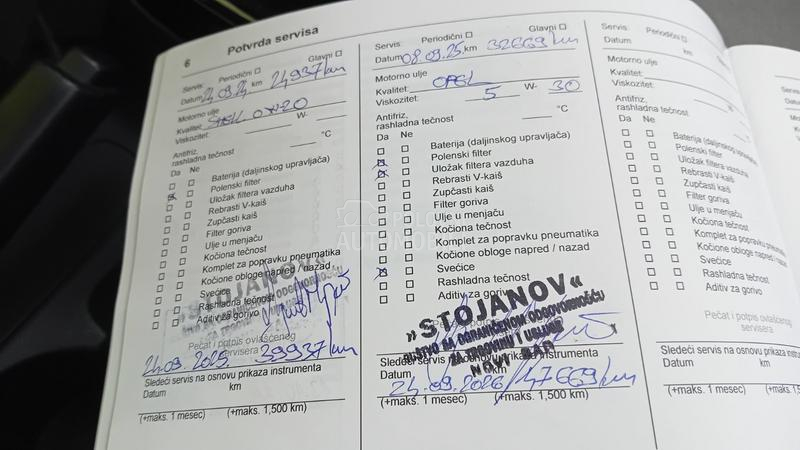 6 Potvrda servisa
Servis: Periodični Glavni
Datum 24.09.24 km 24937/km
Motorno ulje
Kvalitet: SHELL 0W20
Viskozitet: W-
Antifriz,
rashladna tečnost °C
Da Ne
Baterija (daljinskog upravljača)
Polenski filter
Uložak filtera vazduha
Rebrasti V-kaiš
Zupčasti kaiš
Filter goriva
Ulje u menjaču
Kočiona tečnost
Komplet za popravku pneumatika
Kočione obloge napred / nazad
Svećice
Rashladna tečnost
Aditiv za gorivo
STOJANOV
Pečat i potpis ovlašćenog
servisera
24.09.2025 39937/km
Sledeći servis na osnovu prikaza instrumenta
Datum km
(+maks. 1 mesec) (+maks. 1,500 km)
Servis: Periodični Glavni
Datum 08.09.25 km 32669/km
Motorno ulje
Kvalitet: OPEL
Viskozitet: 5 W- 30
Antifriz,
rashladna tečnost °C
Da Ne
Baterija (daljinskog upravljača)
Polenski filter
Uložak filtera vazduha
Rebrasti V-kaiš
Zupčasti kaiš
Filter goriva
Ulje u menjaču
Kočiona tečnost
Komplet za popravku pneumatika
Kočione obloge napred / nazad
Svećice
Rashladna tečnost
Aditiv za gorivo
„STOJANOV“
DRUŠTVO SA OGRANIČENOM ODGOVORNOŠĆU
ZA TRGOVINU I USLUGE
NOVI SAD
Sledeći servis na osnovu prikaza instrumenta
Datum km
24.09.2026/47669/km
(+maks. 1 mesec) (+maks. 1,500 km)
Servis: Periodični
Datum km
Motorno ulje
Kvalitet:
Viskozitet:
Antifriz,
rashladna tečnost
Da Ne
Baterija (daljinskog upravljača)
Polenski filter
Uložak filtera vazduha
Rebrasti V-kaiš
Zupčasti kaiš
Filter goriva
Ulje u menjaču
Kočiona tečnost
Komplet za popravku
Kočione obloge napred
Svećice
Rashladna tečnost
Aditiv za gorivo
Pečat i potpis ovlašćenog
servisera
Sledeći servis na osnovu prikaza
Datum km
(+maks. 1 mesec) (+maks.
POLOVNI
AUTOMOBILI